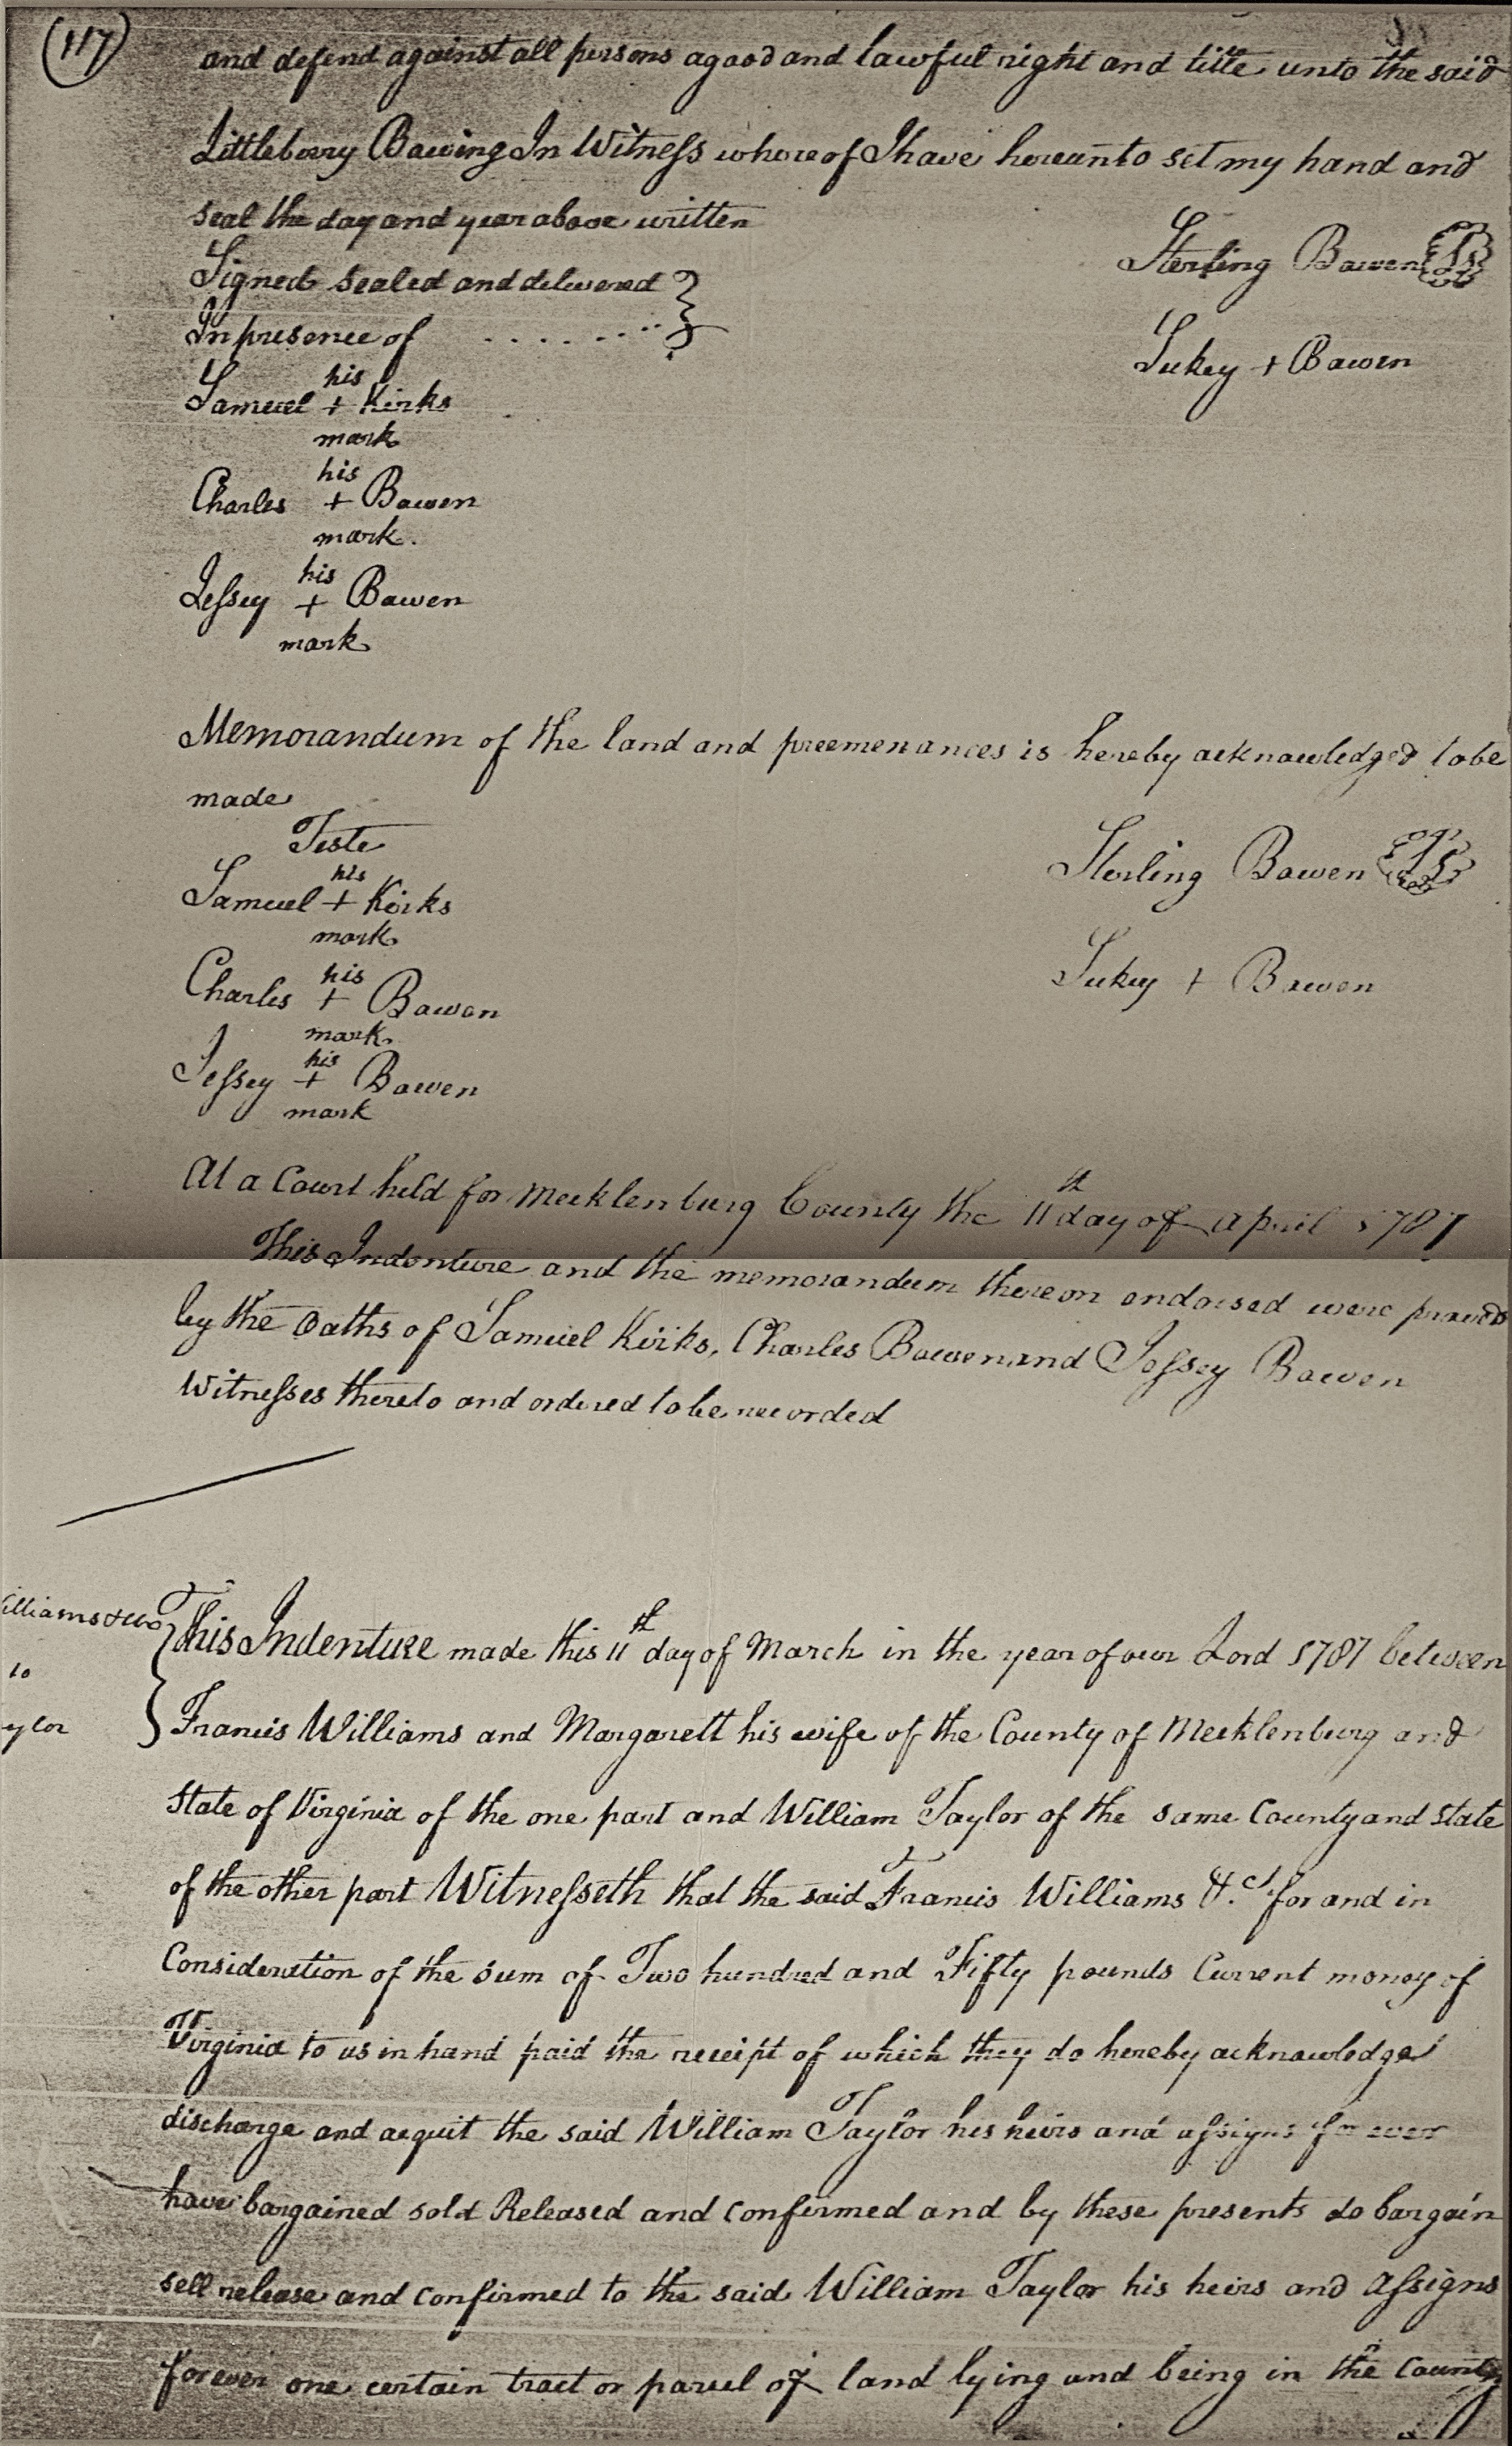 (117)
and defend against all persons a good and lawful right and title unto the said
Littleberry Bawing In Witness whereof I have hereunto set my hand and
seal the day and year above written
Sterling Bawen Ls
Signed sealed and delivered
In presence of ........
Sukey + Bawen
his
Samuel + Kirks
mark
his
Charles + Bawen
mark.
his
Jessey + Bawen
mark
Memorandum of the land and preemenances is hereby acknowledged to be
made
Teste
Sterling Bawen Ls
his
Samuel + Kirks
mark
Sukey + Bawen
his
Charles + Bawen
mark
his
Jessey + Bawen
mark
At a Court held for Mecklenburg County the 11th day of April 1787
This Indenture and the memorandum thereon endorsed were proved
by the Oaths of Samuel Kirks, Charles Bawen and Jessey Bawen
Witnesses thereto and ordered to be recorded
illiams & ux
to
ylor
This Indenture made this 11th day of March in the year of our Lord 1787 between
Francis Williams and Margarett his wife of the County of Mecklenburg and
State of Virginia of the one part and William Taylor of the same County and State
of the other part Witnesseth that the said Francis Williams &c for and in
Consideration of the sum of Two hundred and Fifty pounds Current money of
Virginia to us in hand paid the receipt of which they do hereby acknowledge
discharge and acquit the said William Taylor his heirs and assigns for ever
have bargained sold Released and confirmed and by these presents do bargain
sell release and confirmed to the said William Taylor his heirs and assigns
forever one certain tract or parcel of land lying and being in the County